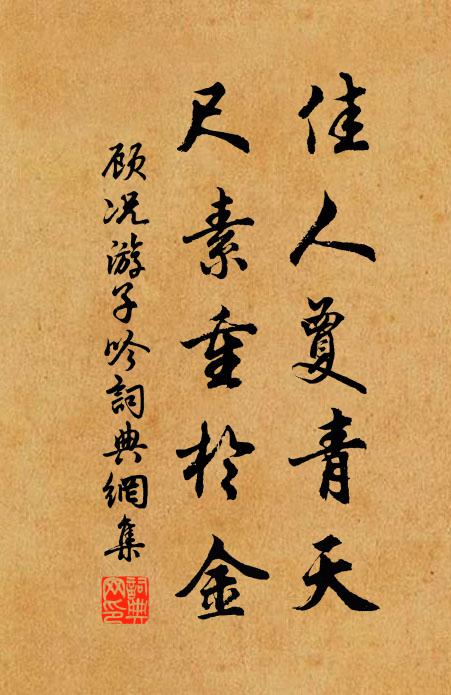 佳人夐青天
尺素重於金
顾况游子吟詞典網集
詞典网印